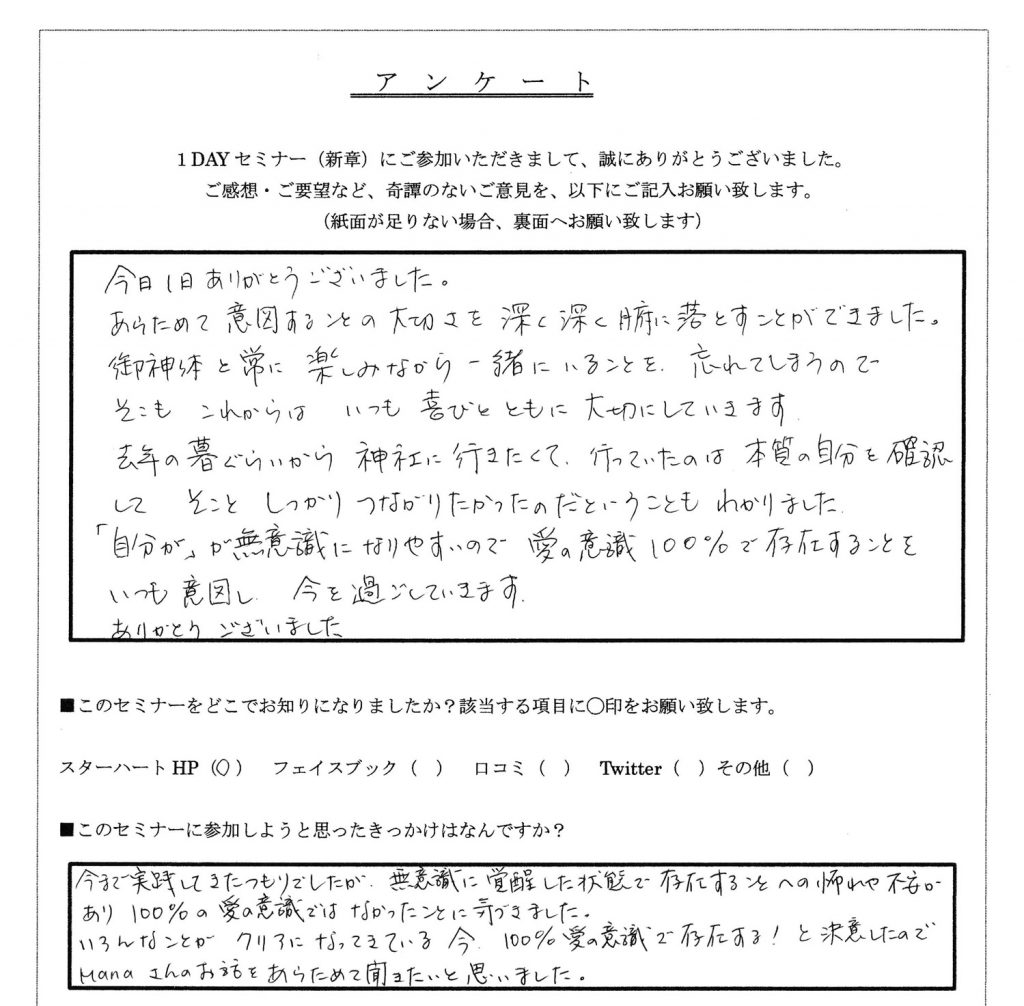 アンケート
1 DAY セミナー（新章）にご参加いただきまして、誠にありがとうございました。
ご感想・ご要望など、奇譚のないご意見を、以下にご記入お願い致します。
（紙面が足りない場合、裏面へお願い致します）
今日1日ありがとうございました。
あらためて 意図することの 大切さを 深く深く腑に落とすことができました。
御神体と常に 楽しみながら 一緒にいることを、忘れてしまうので
そこも これからは いつも 喜びとともに 大切にしていきます.
去年の暮ぐらいから 神社に行きたくて、行っていたのは 本質の自分を確認
して そこと しっかり つながりたかったのだということも わかりました.
「自分が」が無意識になりやすいので 愛の意識100%で存在することを
いつも 意図し、今を過ごしていきます.
ありがとうございました
■このセミナーをどこでお知りになりましたか？該当する項目に○印をお願い致します。
スターハート HP（○） フェイスブック（ ） 口コミ（ ） Twitter（ ）その他（ ）
■このセミナーに参加しようと思ったきっかけはなんですか？
今まで実践してきたつもりでしたが、無意識に覚醒した状態で存在することへの怖れや不安が
あり 100%の愛の意識ではなかったことに気づきました。
いろんなことが クリアになってきている 今、100%愛の意識で存在する！と決意したので
Manaさんのお話をあらためて聞きたいと思いました。